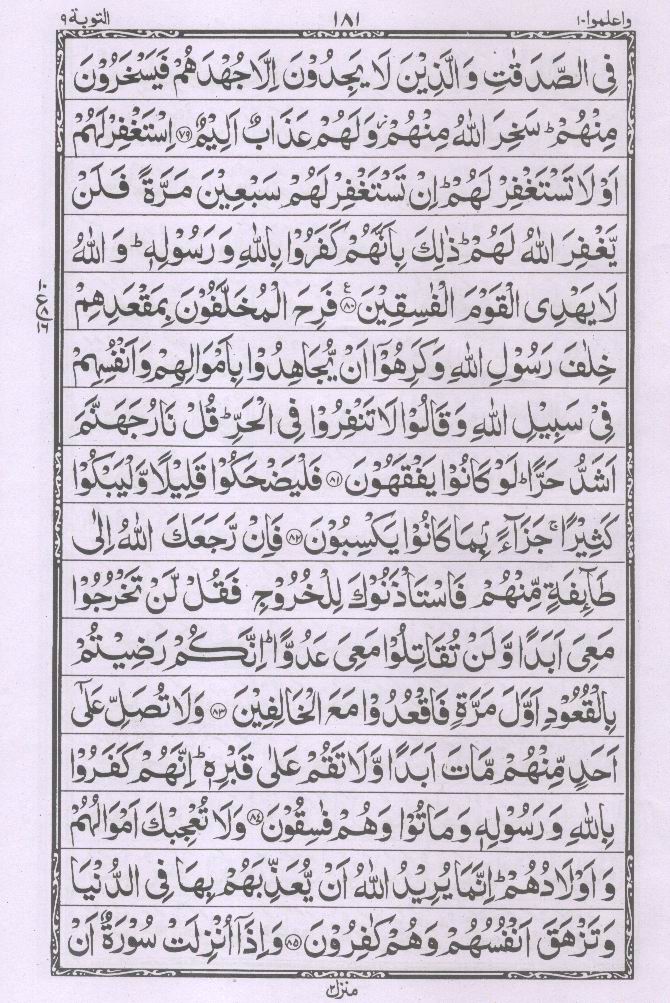 واعلموا۱۰ ۱۸۱ التوبة۹
فِي الصَّدَقٰتِ وَالَّذِيْنَ لَا يَجِدُوْنَ اِلَّا جُهْدَهُمْ فَيَسْخَرُوْنَ
مِنْهُمْ ؕ سَخِرَ اللّٰهُ مِنْهُمْ ؗ وَلَهُمْ عَذَابٌ اَلِيْمٌ ﴿۷۹﴾ اِسْتَغْفِرْ لَهُمْ
اَوْ لَا تَسْتَغْفِرْ لَهُمْ ؕ اِنْ تَسْتَغْفِرْ لَهُمْ سَبْعِيْنَ مَرَّةً فَلَنْ
يَّغْفِرَ اللّٰهُ لَهُمْ ؕ ذٰلِكَ بِاَنَّهُمْ كَفَرُوْا بِاللّٰهِ وَ رَسُوْلِهٖ ؕ وَ اللّٰهُ
لَا يَهْدِى الْقَوْمَ الْفٰسِقِيْنَ ﴿۸۰﴾ ع فَرِحَ الْمُخَلَّفُوْنَ بِمَقْعَدِهِمْ
خِلٰفَ رَسُوْلِ اللّٰهِ وَكَرِهُوْۤا اَنْ يُّجَاهِدُوْا بِاَمْوَالِهِمْ وَاَنْفُسِهِمْ
فِيْ سَبِيْلِ اللّٰهِ وَقَالُوْا لَا تَنْفِرُوْا فِى الْحَرِّ ؕ قُلْ نَارُ جَهَنَّمَ
اَشَدُّ حَرًّا ؕ لَوْ كَانُوْا يَفْقَهُوْنَ ﴿۸۱﴾ فَلْيَضْحَكُوْا قَلِيْلًا وَّلْيَبْكُوْا
كَثِيْرًا ۚ جَزَآءًۢ بِمَا كَانُوْا يَكْسِبُوْنَ ﴿۸۲﴾ فَاِنْ رَّجَعَكَ اللّٰهُ اِلٰى
طَآئِفَةٍ مِّنْهُمْ فَاسْتَاْذَنُوْكَ لِلْخُرُوْجِ فَقُلْ لَّنْ تَخْرُجُوْا
مَعِىَ اَبَدًا وَّلَنْ تُقَاتِلُوْا مَعِىَ عَدُوًّا ؕ اِنَّكُمْ رَضِيْتُمْ
بِالْقُعُوْدِ اَوَّلَ مَرَّةٍ فَاقْعُدُوْا مَعَ الْخَالِفِيْنَ ﴿۸۳﴾ وَلَا تُصَلِّ عَلٰٓى
اَحَدٍ مِّنْهُمْ مَّاتَ اَبَدًا وَّلَا تَقُمْ عَلٰى قَبْرِهٖ ؕ اِنَّهُمْ كَفَرُوْا
بِاللّٰهِ وَ رَسُوْلِهٖ وَمَاتُوْا وَهُمْ فٰسِقُوْنَ ﴿۸۴﴾ وَلَا تُعْجِبْكَ اَمْوَالُهُمْ
وَ اَوْلَادُهُمْ ؕ اِنَّمَا يُرِيْدُ اللّٰهُ اَنْ يُّعَذِّبَهُمْ بِهَا فِى الدُّنْيَا
وَتَزْهَقَ اَنْفُسُهُمْ وَهُمْ كٰفِرُوْنَ ﴿۸۵﴾ وَاِذَاۤ اُنْزِلَتْ سُوْرَةٌ اَنْ
منزل۲